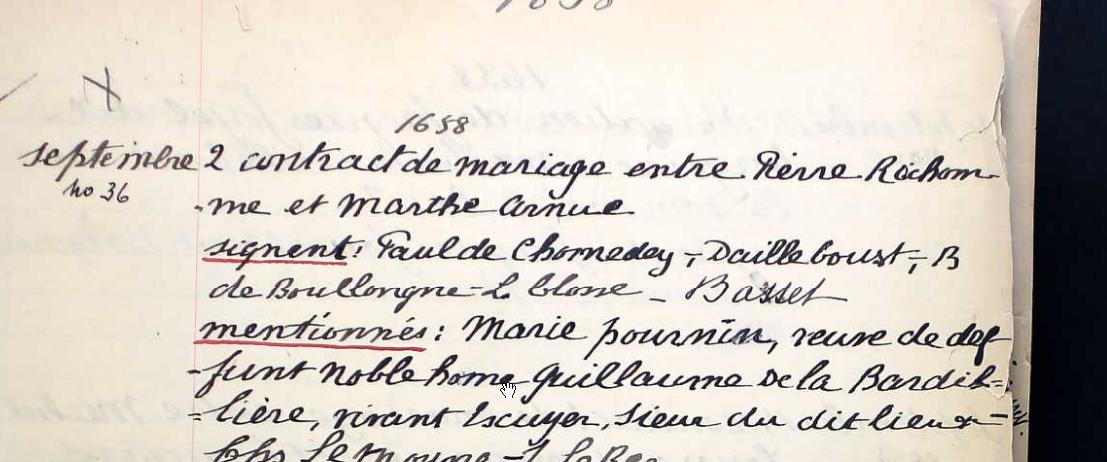 1658
1658
septembre 2 contract de mariage entre Pierre Richom-
no 36
-me et Marthe Arnue.
signent: Paul de Chomedey - Dailleboust - B
de Boullongne - L Closse - Basset
mentionnés: Marie pournin, veuve de def
-funt noble home Guillaume de la Bardil-
-lière, vivant Escuyer, Sieur du dit lieu &-
Chs Le Moyne -